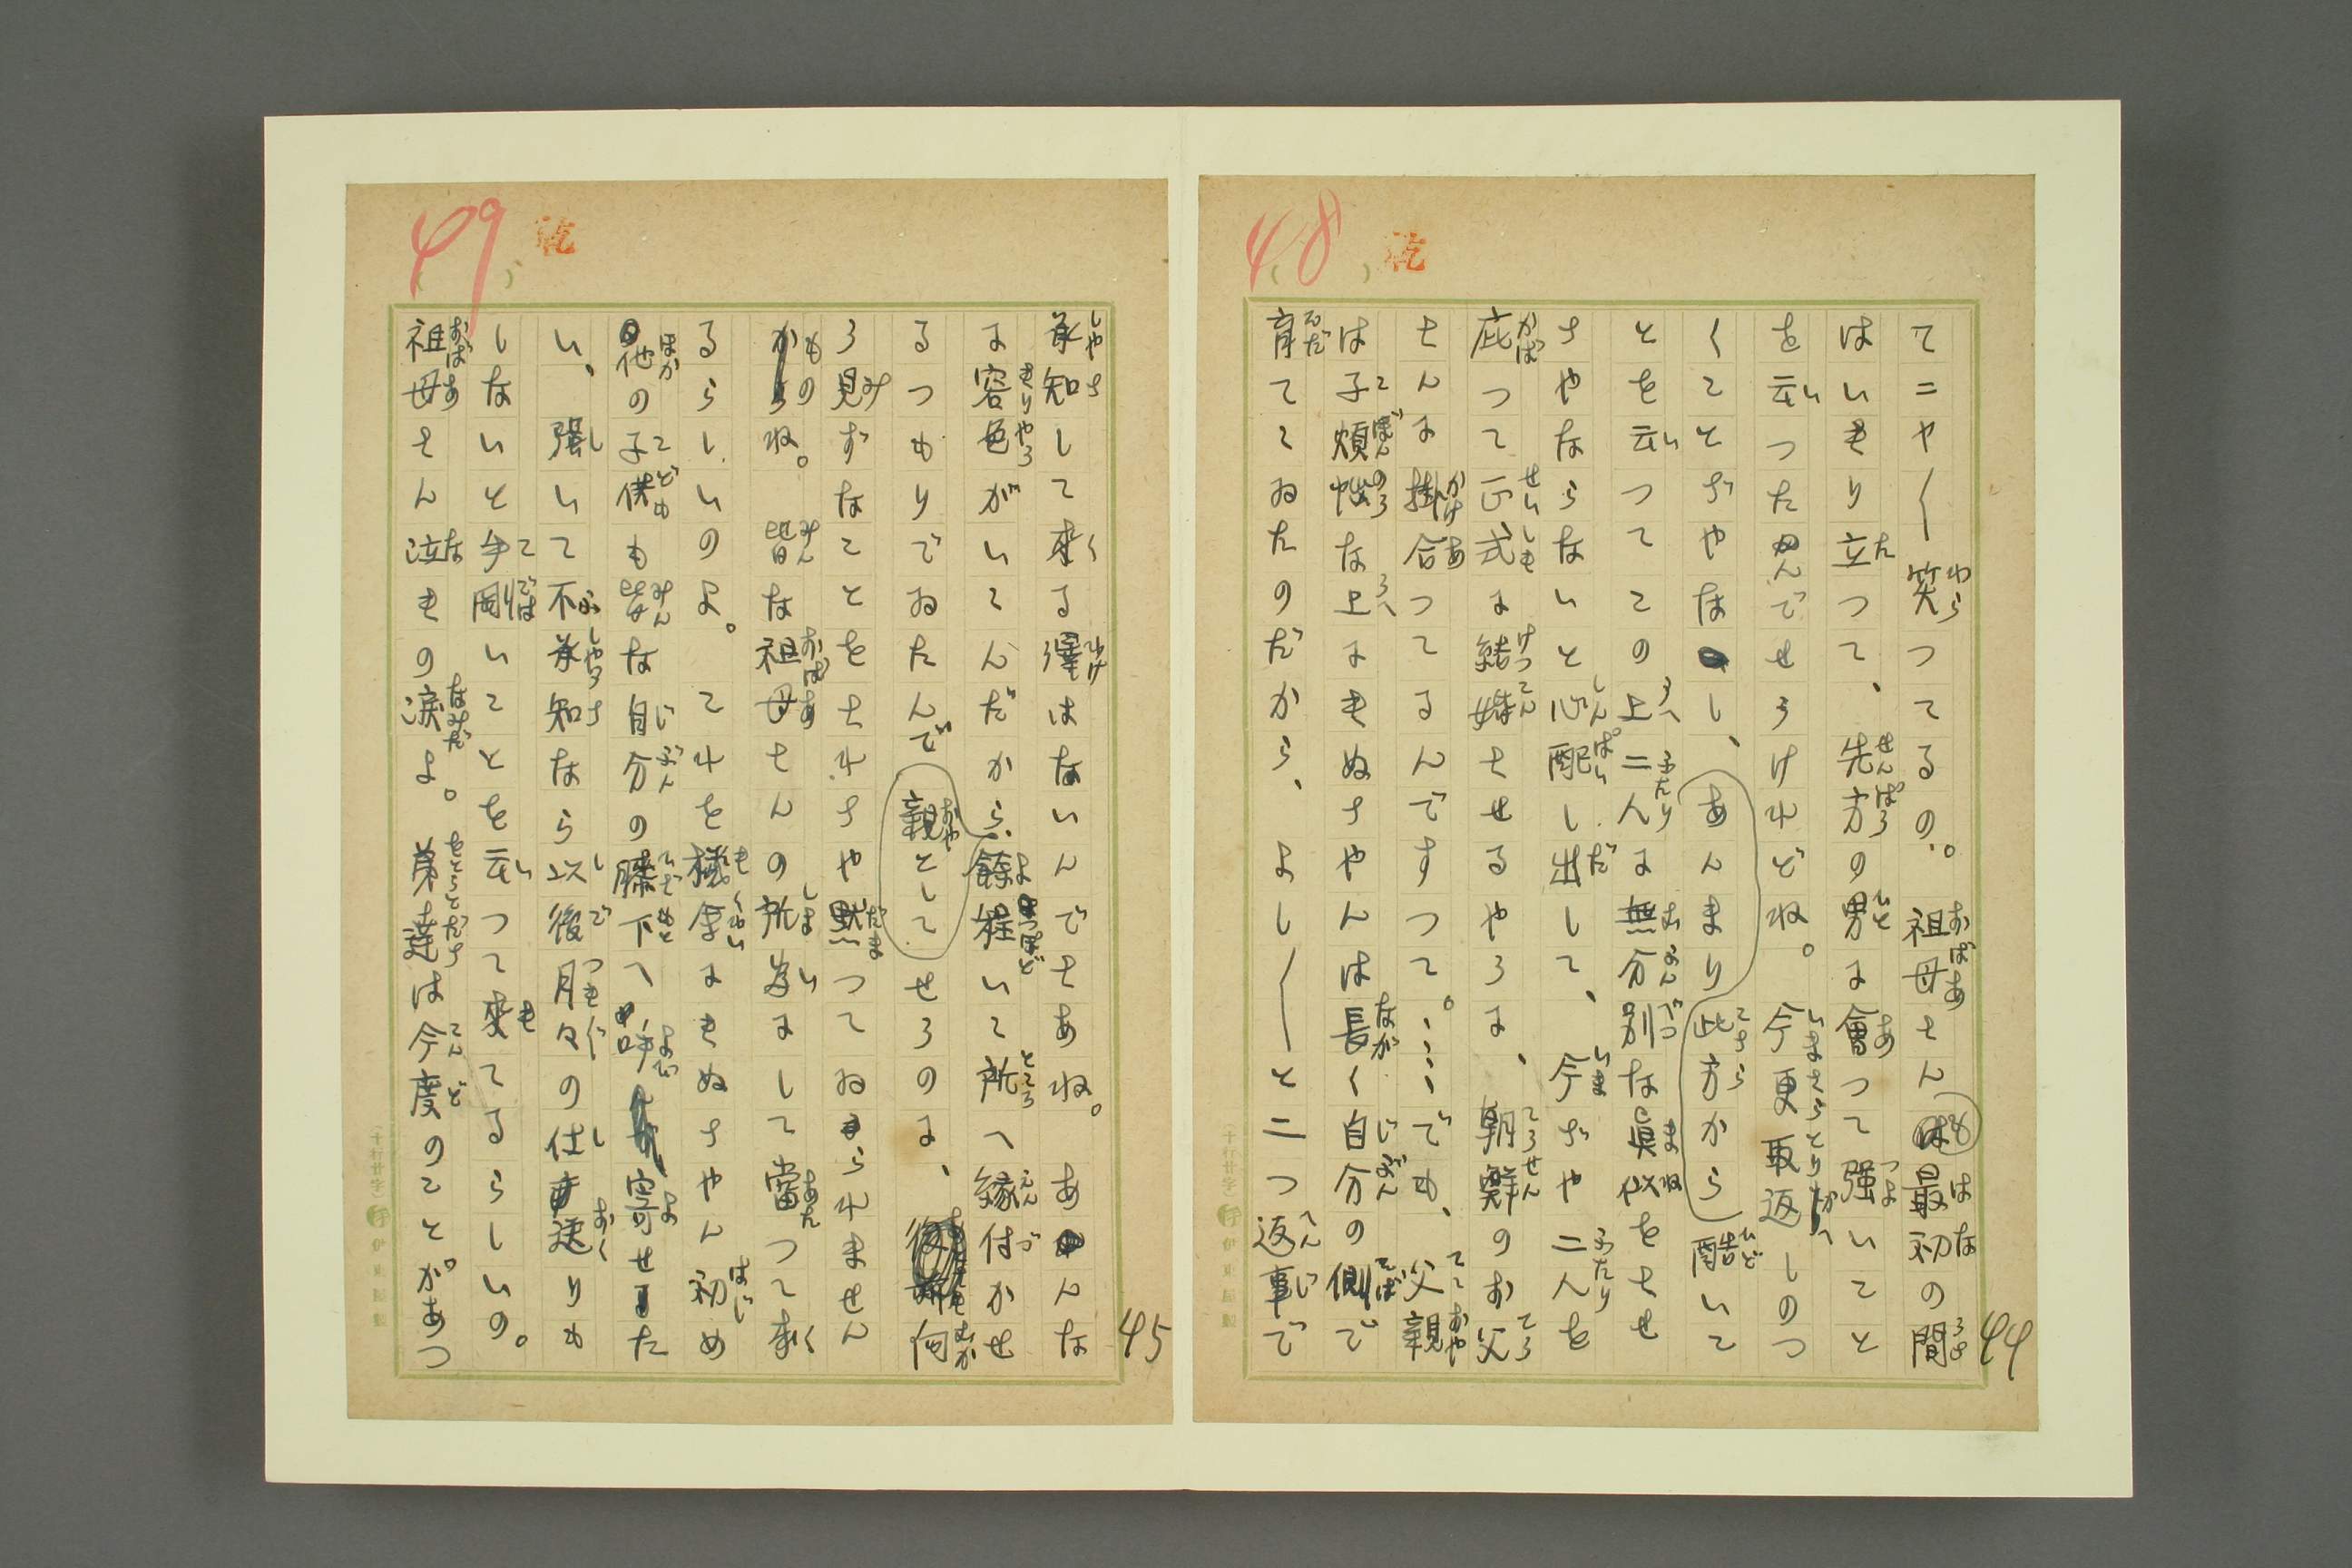 48
44
てニヤ〱笑つてるの。祖母さんも最初の間
はいきり立つて、先方の男に會つて強いこと
を云つたんでせうけれどね。今更取返しのつ
くことぢやなし、あんまり此方から酷いこ
とを云つてこの上二人に無分別な眞似をさせ
ちやならないと心配し出して、今ぢや二人を
庇つて正式に結婚させるやうに、朝鮮のお父
さんに掛合つてるんですつて。……でも、父親
は子煩悩な上にきぬちやんは長く自分の側で
育てゝゐたのだから、よし〱と二つ返事で
49
45
承知して來る譯はないんでさあね。あんな
に容色がいゝんだから、餘程いゝ所へ縁付かせ
るつもりでゐたんで親としてせうのに、何
う見ずなことをされちや默つてゐられません
ものね。皆な祖母さんの所爲にして當つて來
るらしいのよ。これを機會にきぬちやん初め
他の子供も皆な自分の膝下へ呼寄せた
い、強いて不承知なら以後月々の仕送りも
しないと手剛いことを云つて來てるらしいの。
祖母さん泣きの涙よ。弟達は今度のことがあつ